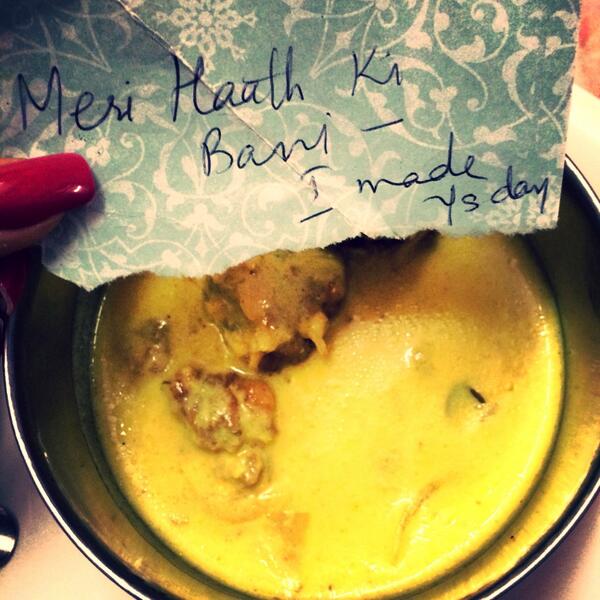 Meri Haath Ki
Bani -
I made
ysday